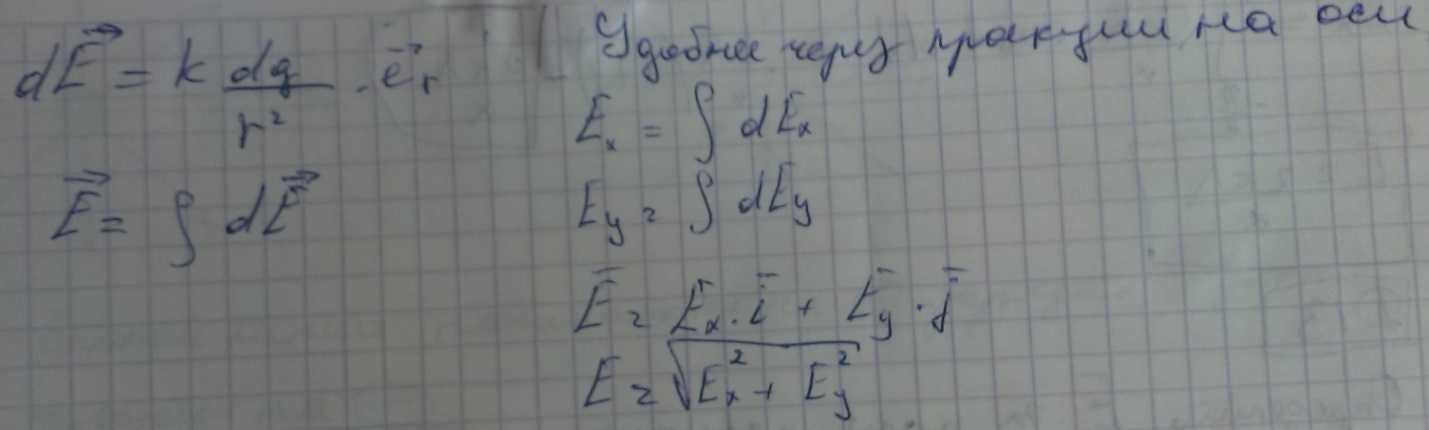 dE⃗ = k dq/r² · e⃗ᵣ
E⃗ = ∫ dE⃗
Удобнее через проекции на оси
Eₓ = ∫ dEₓ
E_y = ∫ dE_y
E̅ = Eₓ · i̅ + E̅_y · j̅
E = √(Eₓ² + E_y²)